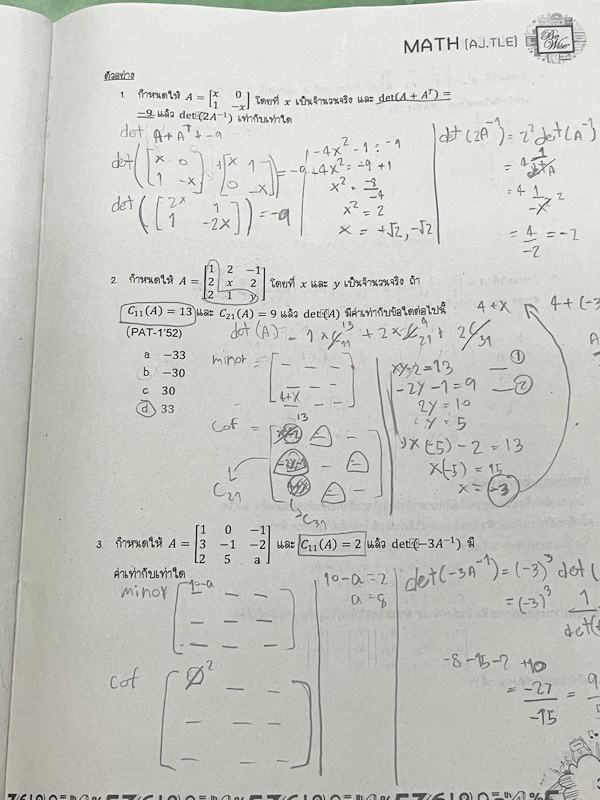 MATH (AJ.TLE)
Be Wise
ตัวอย่าง
1. กำหนดให้ A = [x 0 1 -x] โดยที่ x เป็นจำนวนจริง และ det(A + Aᵀ) =
-9 แล้ว det(2A⁻¹) เท่ากับเท่าใด
det A + Aᵀ = -9
det([x 0 1 -x] + [x 1 0 -x]) = -9
det([2x 1 1 -2x]) = -9
-4x² - 1 = -9
-4x² = -9 + 1
x² = -8/-4
x² = 2
x = +√2, -√2
det(2A⁻¹) = 2² det(A⁻¹)
= 4 1/
= 4 1/-x²
= 4/-2 = -2
2. กำหนดให้ A = [1 2 -1 2 x 2 2 1 y] โดยที่ x และ y เป็นจำนวนจริง ถ้า
C₁₁(A) = 13 และ C₂₁(A) = 9 แล้ว det(A) มีค่าเท่ากับข้อใดต่อไปนี้
(PAT-1'52)
a -33
b -30
c 30
d 33
det(A) = 1 × C₁₁ 13 + 2 × C₂₁ 9 + 2 C₃₁
4+x
4 + (-3
minor = [ 4+x ]
cof = [ 13 ]
C₂₁
C₃₁
xy - 2 = 13 ①
-2y - 1 = 9 ②
2y = 10
y = 5
x(-5) - 2 = 13
x(-5) = 15
x = -3
3. กำหนดให้ A = [1 0 -1 3 -1 -2 2 5 a] และ C₁₁(A) = 2 แล้ว det(-3A⁻¹) มี
ค่าเท่ากับเท่าใด
minor [10-a ]
cof [ 2 ]
10-a = 2
a = 8
det(-3A⁻¹) = (-3)³ det(
= (-3)³ 1/det(
-8 -15 -2 +10
= -27/-15 = 9/5